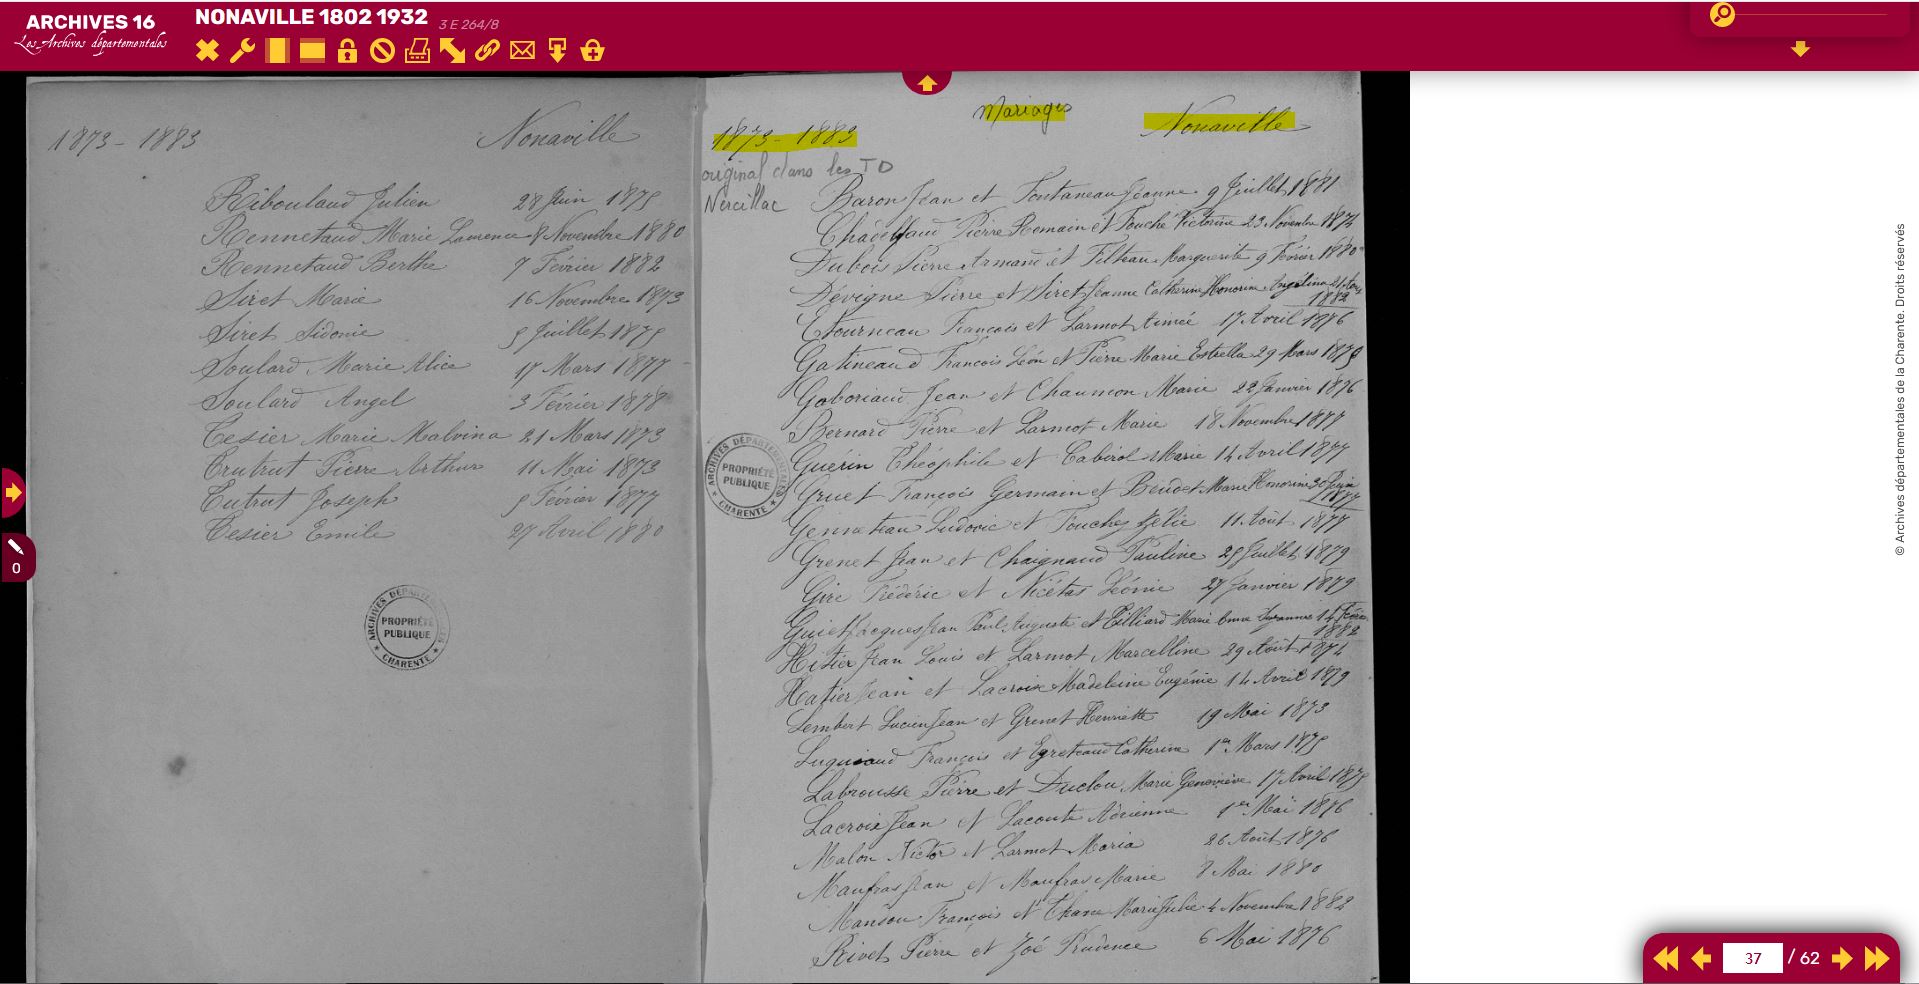 ARCHIVES 16
Les Archives départementales
NONAVILLE 1802 1932 3 E 264/8
1873 - 1883 Nonaville
Riboulaud Julien 28 Juin 1875
Rennetaud Marie Laurence 8 Novembre 1880
Rennetaud Berthe 7 Février 1882
Siret Marie 16 Novembre 1873
Siret Sidonie 5 Juillet 1875
Soulard Marie Alice 17 Mars 1877
Soulard Angel 3 Février 1878
Tesier Marie Malvina 21 Mars 1873
Trutrut Pierre Arthur 11 Mai 1873
Tutrut Joseph 5 Février 1877
Tesier Emile 27 Avril 1880
ARCHIVES DÉPARTEMENTALES
PROPRIÉTÉ
PUBLIQUE
CHARENTE
Mariages
1873 - 1883 Nonaville
original dans les TD
Nercillac
Baron Jean et Fontaneau Jeanne 9 Juillet 1881
Pierre Romain et Touché Victorine 23 Novembre 1874
Dubois Pierre Armand et Filteau Marguerite 9 Février 1880
Dévigne Pierre et Siret Jeanne Catherine Honorine Angelina
1882
Etourneau François et Larmot Aimée 17 Avril 1876
Gatineaud François Léon et Pierre Marie Estrella 29 Mars 1879
Gaboriaud Jean et Chaumon Marie 22 Janvier 1876
Bernard Pierre et Larmot Marie 18 Novembre 1877
Guérin Théophile et Cabirol Marie 14 Avril 1877
Gruet François Germain et Beudet Marie Honorine 30 Juin
1877
Genneteau Ludovic et Touchez Zélie 11 Août 1877
Grenet Jean et Chaignaud Pauline 25 Juillet 1879
Gire Frédéric et Nicétas Léonie 27 Janvier 1879
Guiet Jacques Jean Paul Auguste et Tilliard Marie Anne Suzanne 14 Février
1882
Hitier Jean Louis et Larmot Marcelline 29 Août 1874
Hatier Jean et Lacroix Madeleine Eugénie 14 Avril 1879
Lembert Lucien Jean et Grenet Henriette 19 Mai 1873
François et Egreteaud Catherine 1er Mars 1875
Labrousse Pierre et Duclou Marie Geneviève 17 Avril 1875
Lacroix Jean et Lacoute Adrienne 1er Mai 1876
Malon Victor et Larmot Maria 26 Août 1876
Maufras Jean et Maufras Marie 8 Mai 1880
Mandou François et Thane Marie Julie 4 Novembre 1882
Rivet Pierre et Zoé Prudence 6 Mai 1876
ARCHIVES DÉPARTEMENTALES
PROPRIÉTÉ
PUBLIQUE
CHARENTE
0
© Archives départementales de la Charente. Droits réservés
37 / 62